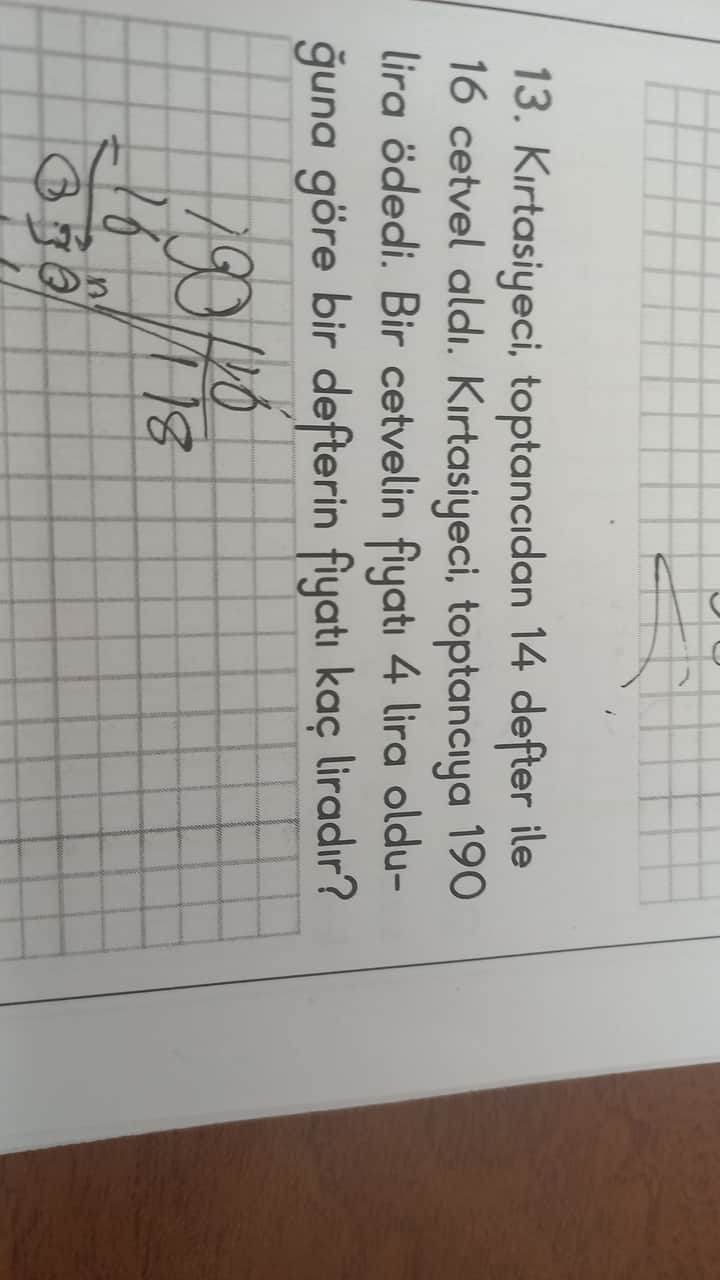 13. Kırtasiyeci, toptancıdan 14 defter ile
16 cetvel aldı. Kırtasiyeci, toptancıya 190
lira ödedi. Bir cetvelin fiyatı 4 lira oldu-
ğuna göre bir defterin fiyatı kaç liradır?
190 16
16 118
030